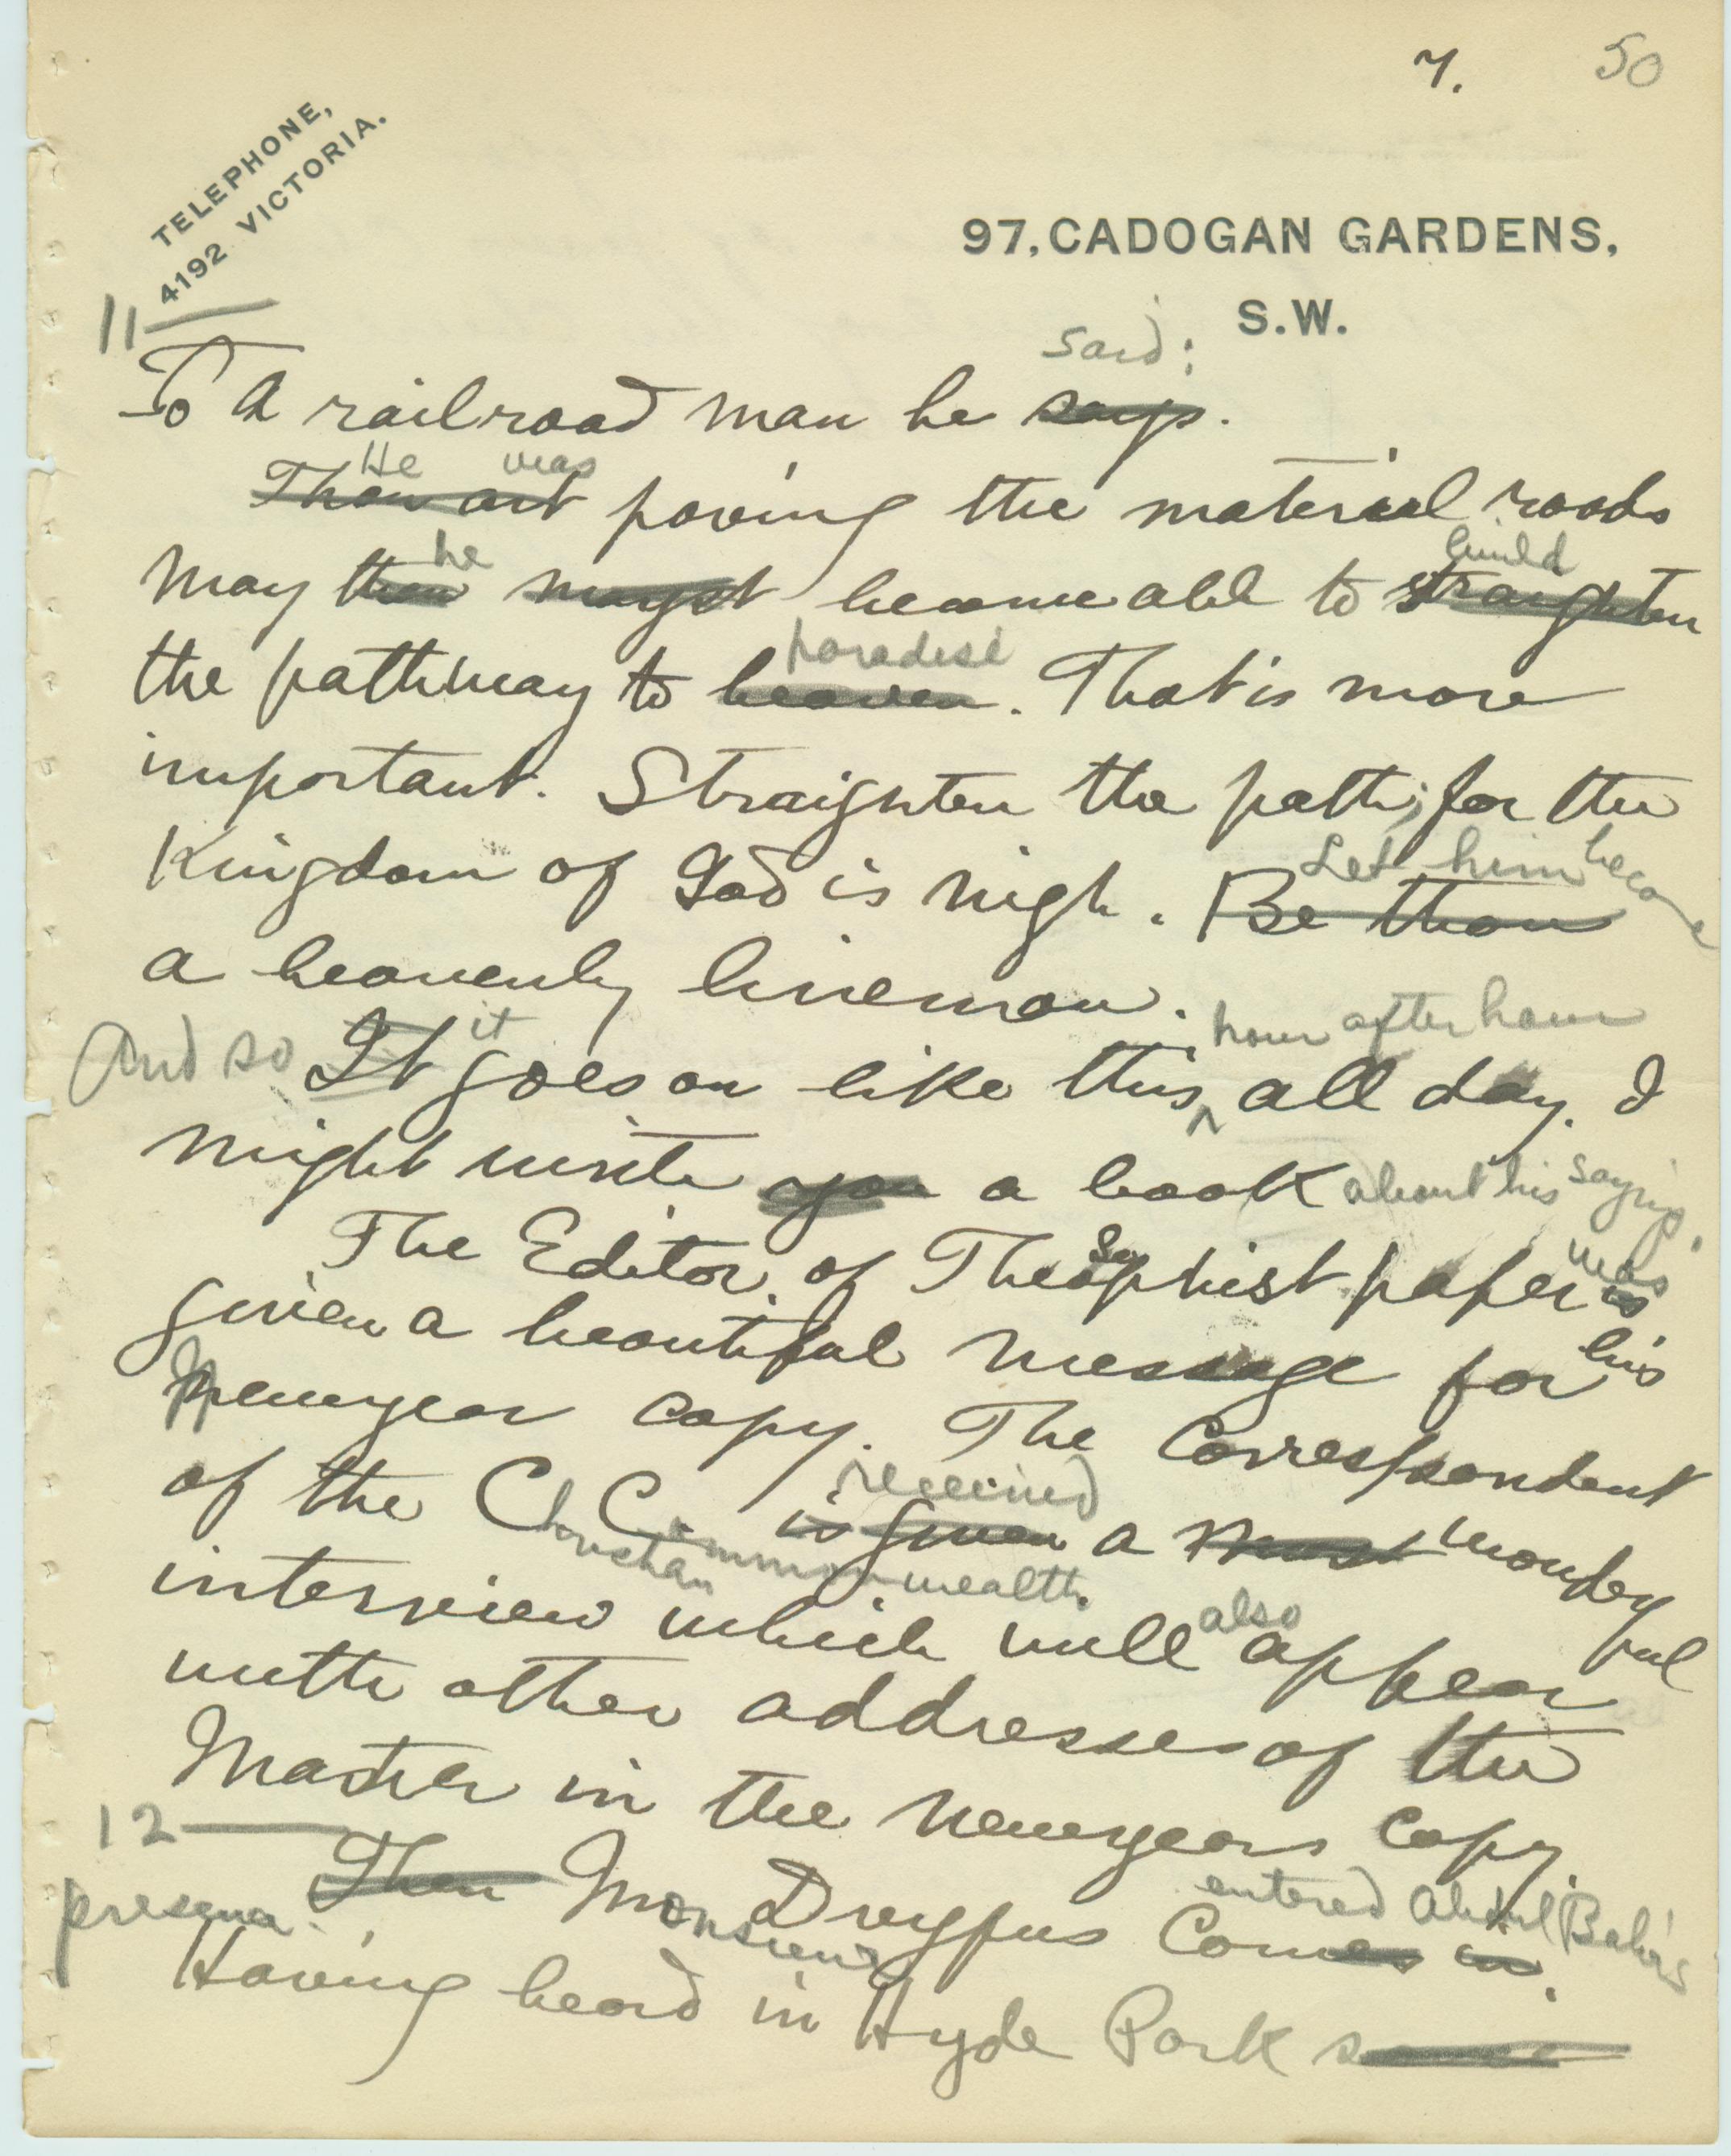 7. 50
TELEPHONE,
4192 VICTORIA.
97, CADOGAN GARDENS,
S.W.
11
said:
To A railroad man he says.
He was
Thou art paving the material roads
he build
May thou mayest become able to straighten
paradise
the pathway to heaven. That is more
important. Straighten the path; for the
Let him become
Kingdom of God is nigh. Be thou
a heavenly lineman.
hour after hour
And so It it goes on like this, all day. I
might write you a book about his sayings.
The Editor of Theosophist paper is was
given a beautiful message for his
Newyear copy. The Correspondent
received
of the C. C. is given a most wonderful
Christian Commonwealth.
interview which will also appear
with other addresses of the
Master in the newyears copy.
12
entered Abdul Baha's
presence.
Then Monsieur Dreyfus comes in.
Having heard in Hyde Park some